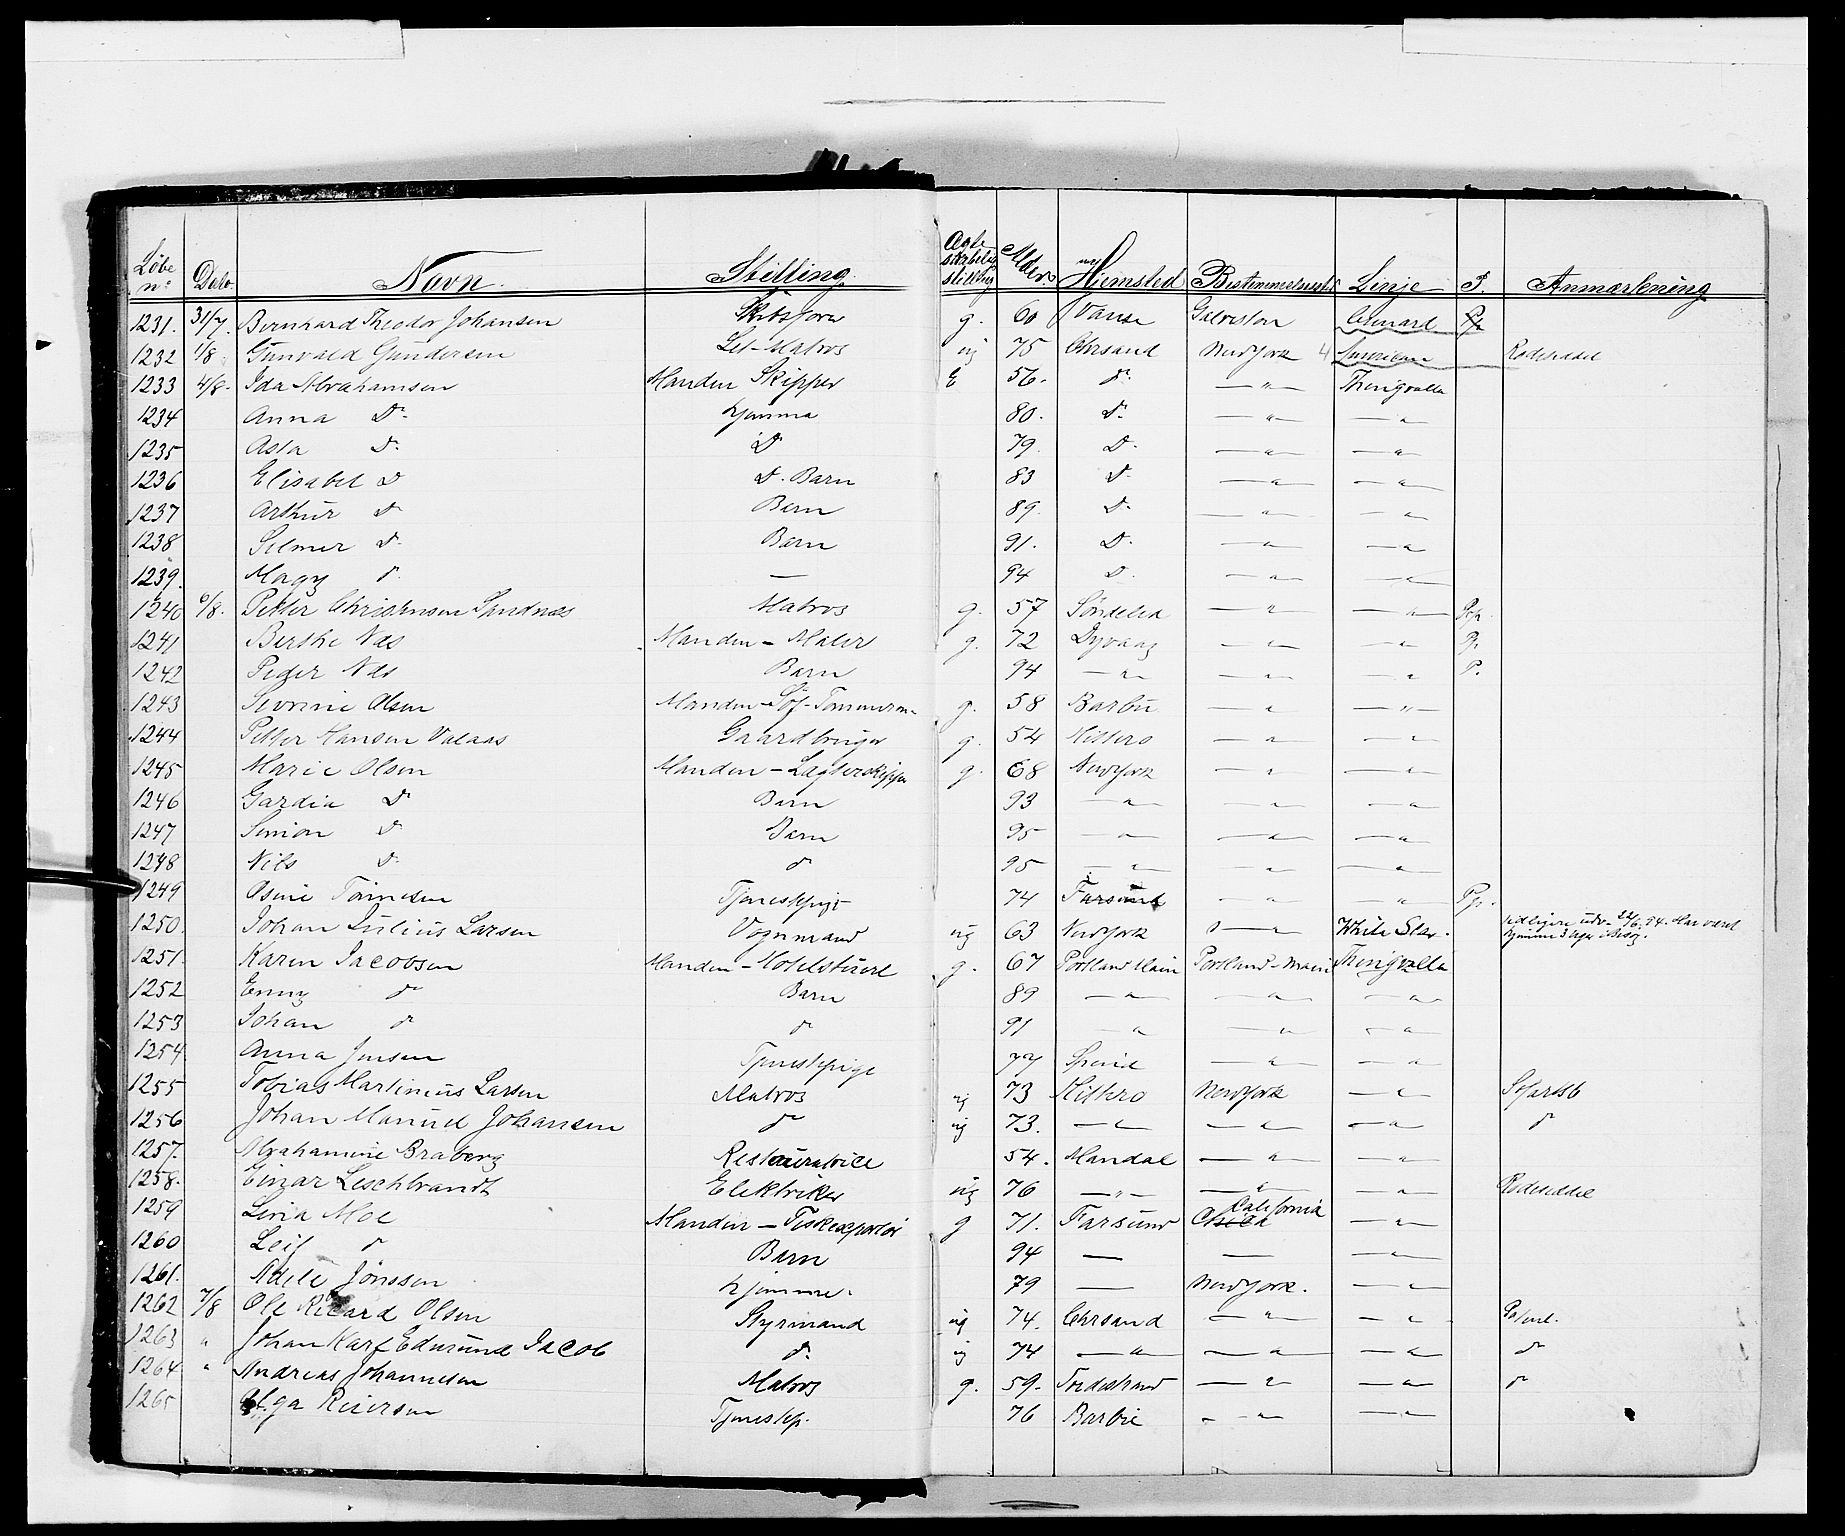 Løbe n° Dato Navn Stilling Ægte skabelig stilling Alder Hjemsted Bestemmelsessted Linje P. Anmærkning
1231. 31/7. Bernhard Theodor Johansen g. 60 Vanse Galveston Cunard
1232 1/8 Gunvald Gundersen Let-Matros ug 75 Chrsand NewYork 4 American Rodeseddel
1233 4/8. Ida Abrahamsen Manden Skipper E 56. do. —"— Thingvalla
1234 Anna Do. hjemme 80. Do. —"— —"—
1235 Asta Do. Do 79. Do. —"— —"—
1236 Elisabet Do Do. Barn 83 Do. —"— —"—
1237 Arthur Do Barn 89. Do. —"— —"—
1238 Selmer Do. Barn 91. Do. —"— —"—
1239. Magy do. — 94 Do. —"— —"—
1240 6/8. Petter Christensen Sandnæs Matros g. 57 Søndeled —"— —"— Pp.
1241 Berthe Næs Manden - Maler g. 72 Dyvaag —"— —"— P.
1242 Peder Næs Barn 94 —"— —"— —"— P.
1243 Sevrine Olsen Manden - Søf-Tømmerm. g. 58 Barbu —"— —"—
1244 Petter Hansen Valaas Gaardbruger g. 54 Hitterø —"— —"—
1245 Marie Olsen Manden - Lagterskipper g. 68 NewYork —"— —"—
1246 Gardia Do Barn 93 —"— —"— —"—
1247 Simon Do Barn 95 —"— —"— —"—
1248 Nils Do. do 95 —"— —"— —"—
1249 Osmine Tønnesen Tjenestepige 74 Farsund —"— —"— Pp.
1250. Johan Julius Larsen Vognmand ug 63 NewYork —"— White Star. tidligere udv. 24/6. 94. Har været
hjemme 3 Uger i Besøg.
1251. Karen Jacobsen Manden - Hotelstuert g. 67 Portland Main Portland - Main Thingvalla
1252 Emmy do Barn 89 —"— —"— —"—
1253 Johan do do 91 —"— —"— —"—
1254 Anna Jensen Tjenestepige 77 Spind —"— —"—
1255 Tobias Martinius Larsen Matros ug 73 Hitterø NewYork —"— Søfartsb
1256 Johan Manuel Johansen do ug 73. —"— —"— —"— do
1257. Abrahamine Braberg Restauratrice 54. Mandal —"— —"—
1258. Einar Leschbrandt Elektriker ug 76 —"— —"— —"— Rodeseddel
1259 Levia Moe Manden - Fiskexportør g 71. Farsund California —"—
1260 Leif do Barn 94 — — —"—
1261. Adele Jönssen hjemme. 79 — NewYork. —"—
1262 7/8 Ole Ricard Olsen Styrmand ug 74. Chrsand —"— —"—
1263 " Johan Karl Edmund Jacob do. ug 74 —"— —"— —"— do
1264 " Andreas Johannesen Matros g. 59. Tvedestrand —"— —"— do
1265 Olga Reiersen Tjenestep. 76 Barbu —"— —"—